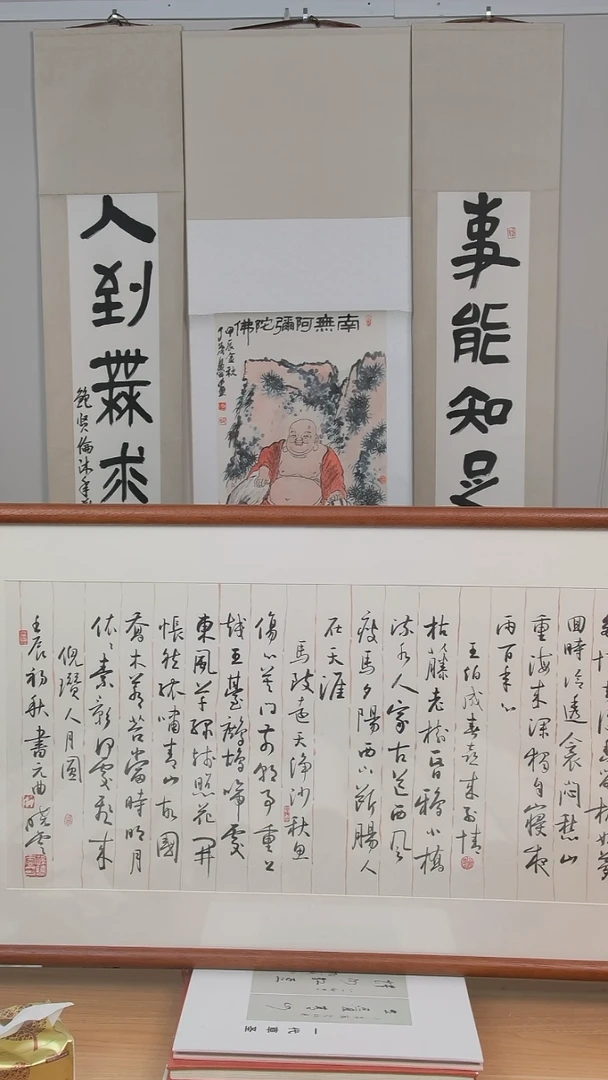 南無阿彌陀佛
甲辰金秋
事能知足
人到無求
鲍贤伦沐手
回時冷透衾闷愁山
重海来深獨自寝夜
雨百年心
王伯成春喜来别情
枯藤老樹昏鴉小橋
流水人家古道西風
瘦馬夕陽西下斷腸人
在天涯
馬致遠天淨沙秋思
傷心莫问前朝事重上
越王臺鹧鸪啼處
東風草绿残照花開
悵然孤嘯青山故國
喬木蒼苔當時明月
依依素影何處飛来
倪瓒人月圓
壬辰初秋書元曲
一代草圣